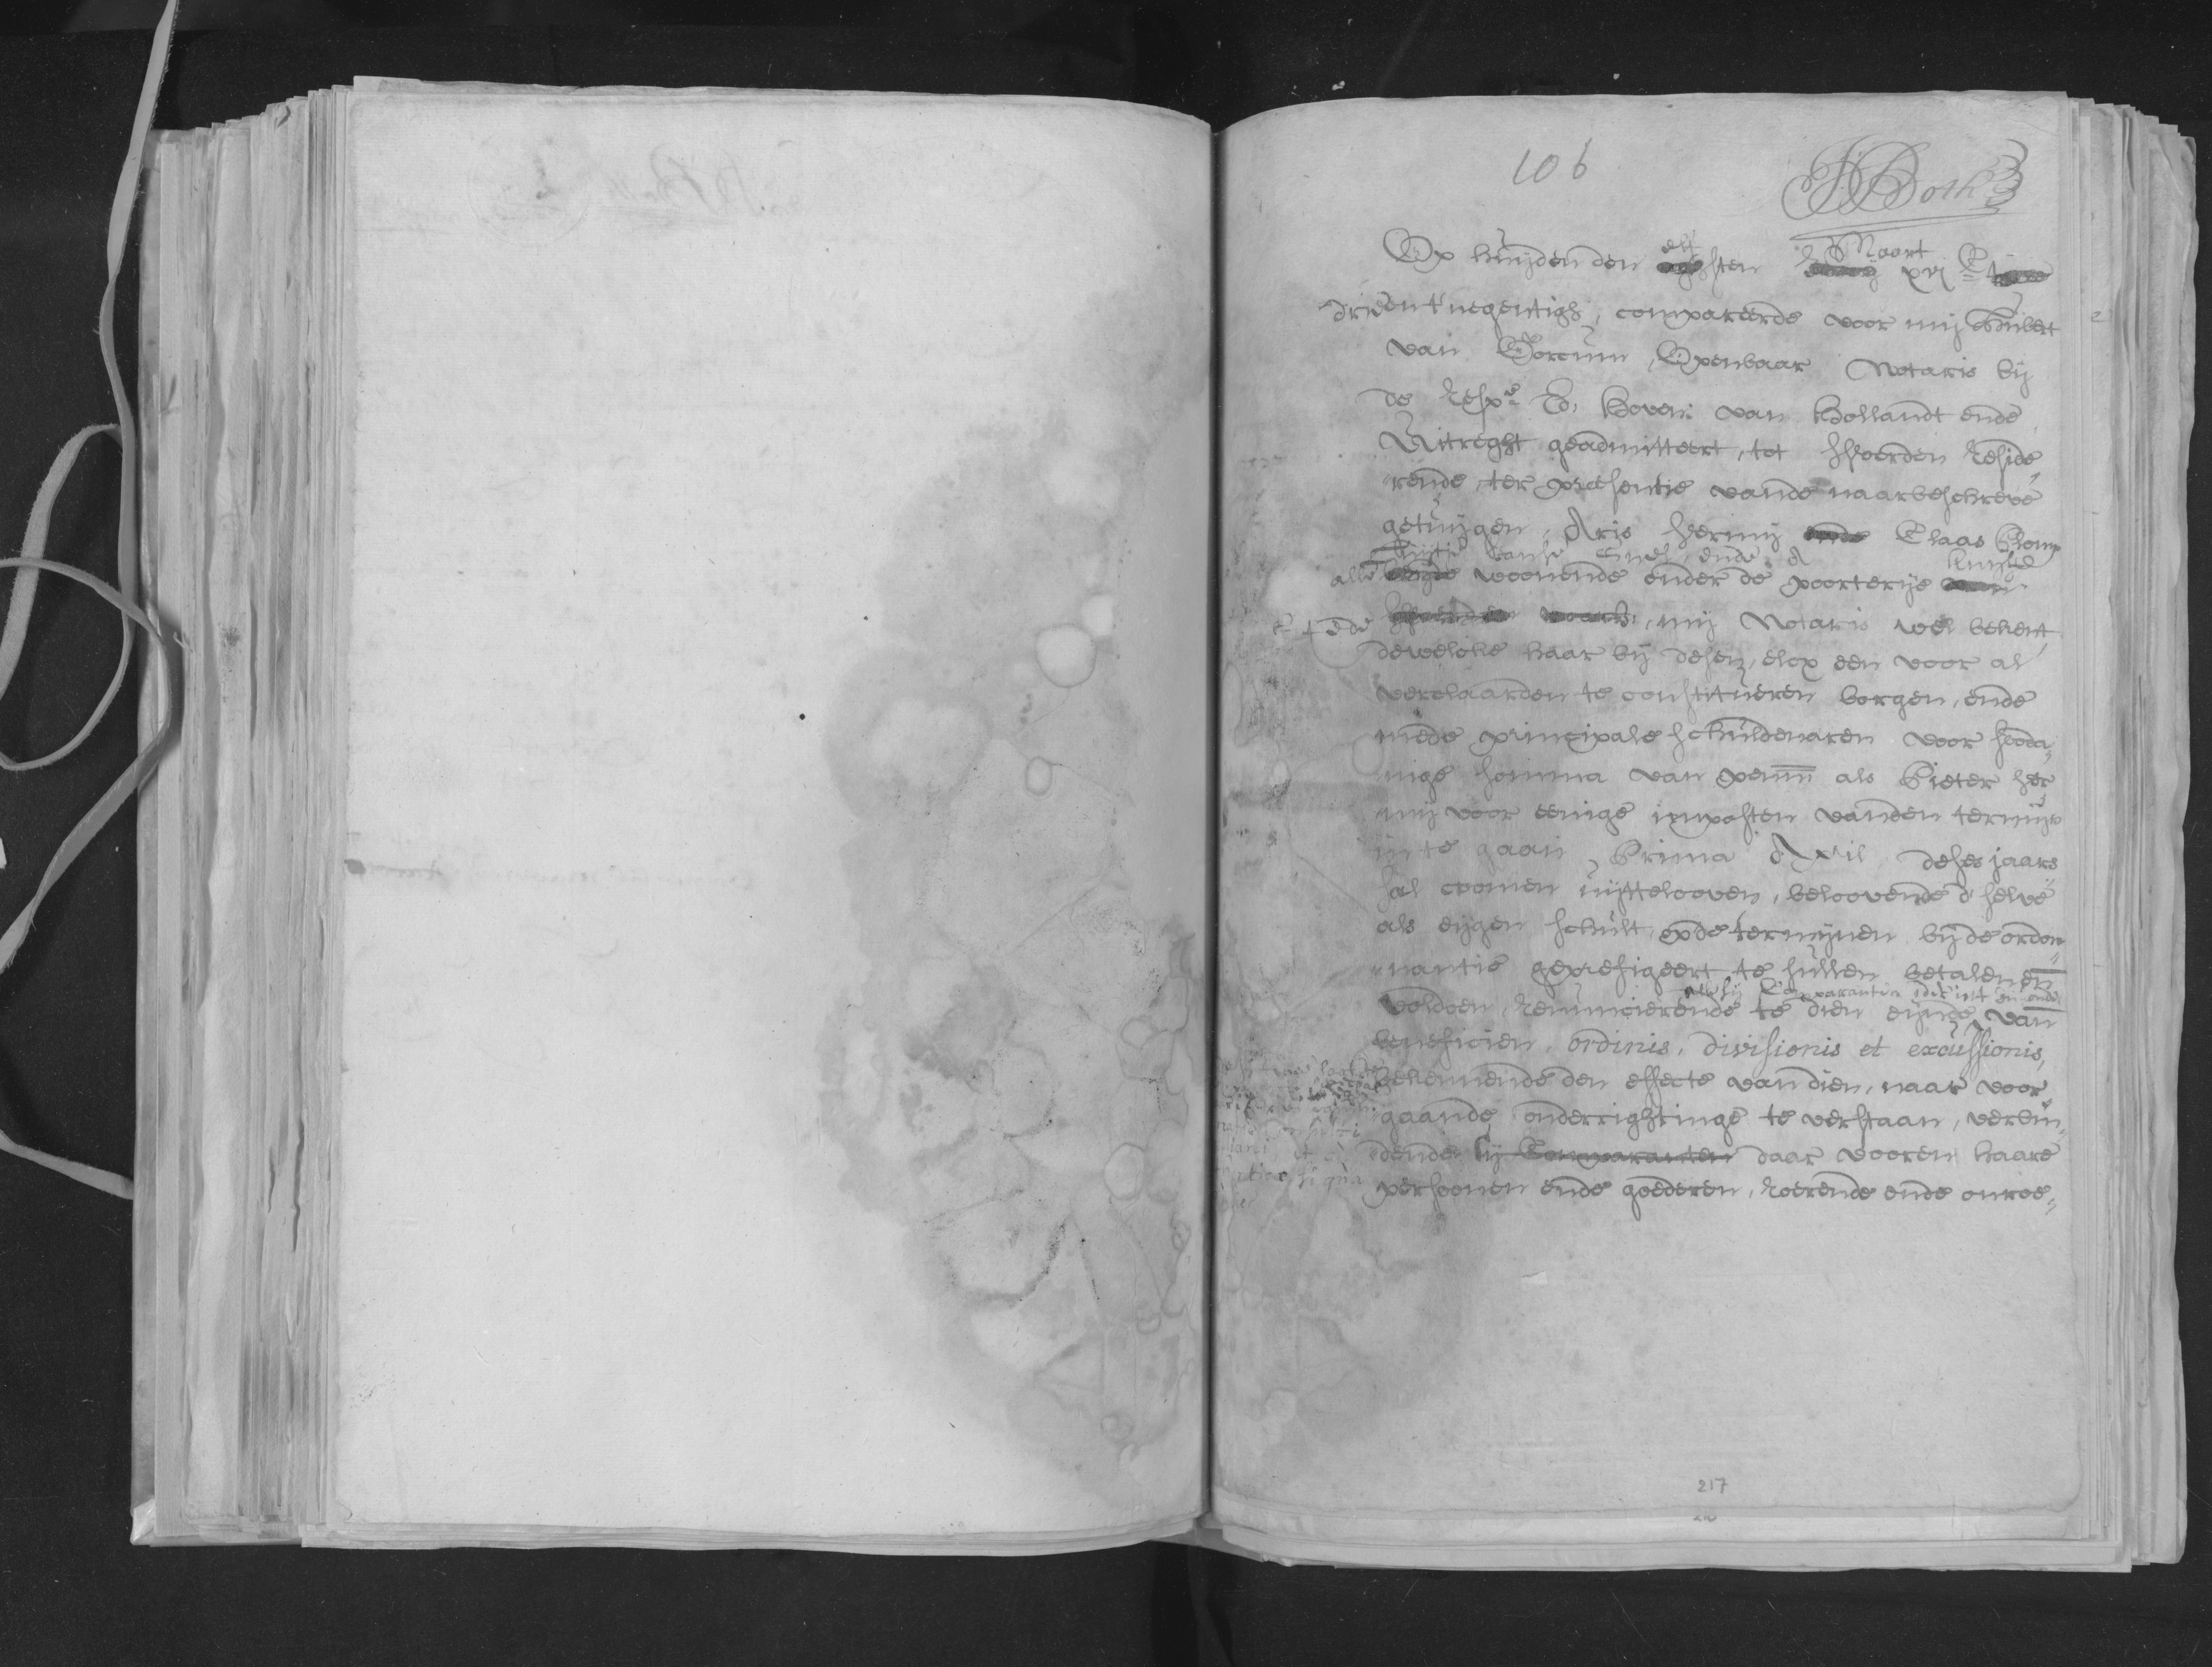 106
JBoth
Op huijden den elfsten Maart xvi C
drieentnegentigh, compareerde voor mij Huibert
van Gorcum, Openbaar Notaris bij
de Respe. Ed. Hoven van Hollandt ende
Uitreght geadmitteert, tot Woerden reside„
rende, ter presentie vande naarbeschreve
getuijgen, Aris Hermij ende Claas Plomp
alle woonende onder de poorterije
mij Notaris wel bekent,
dewelcke haar bij desen, elcx een voor al
verclaarden te constitueren borgen, ende
mede principale schuldenaren voor sooda„
nige somma van penn als Pieter Her
mij voor eenige imposten vanden termijn
in te gaan Prima April deses jaars
sal coomen uijttelooven, beloovende d'selve
als eijgen schult, op de termijnen bij de ordon„
nantie geprefigeert te sullen betalen en
voldoen, Renuncierende te dien eijnde van
beneficien, ordinis, divisionis et excussionis,
bekennende den effecte van dien, naar voor„
gaande onderrightinge te verstaan, verbin„
dende sij Comparanten daar vooren haare
persoonen ende goederen, roerende ende onroe„
217